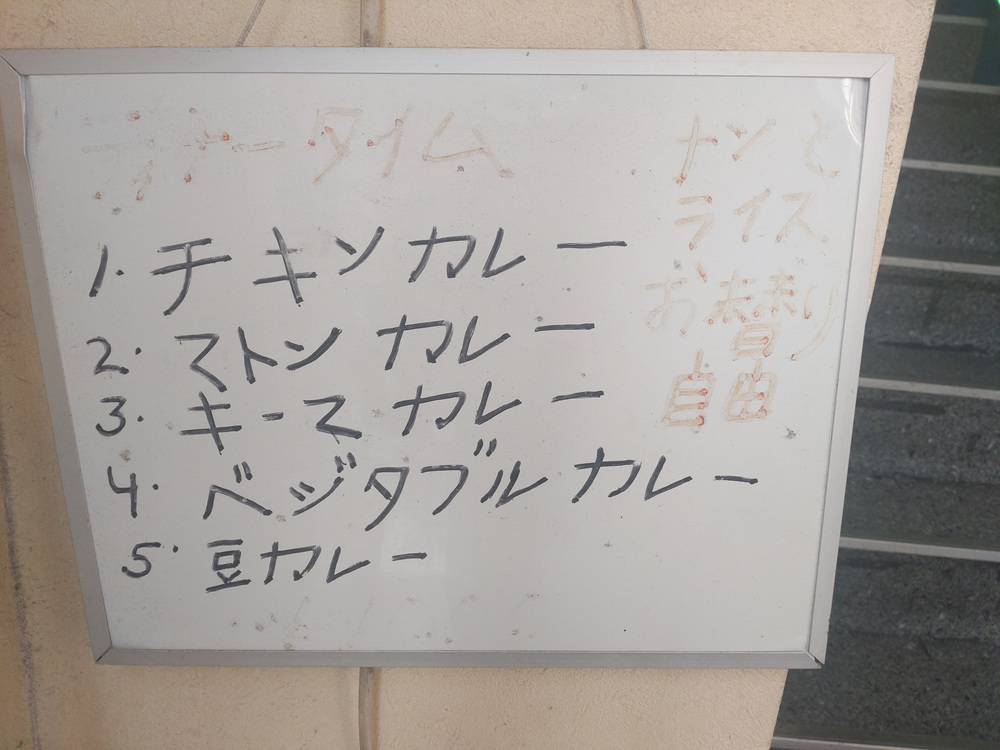 ディナータイム
1. チキンカレー
2. マトンカレー
3. キーマカレー
4. ベジタブルカレー
5. 豆カレー
ナンと
ライス
お替り
自由